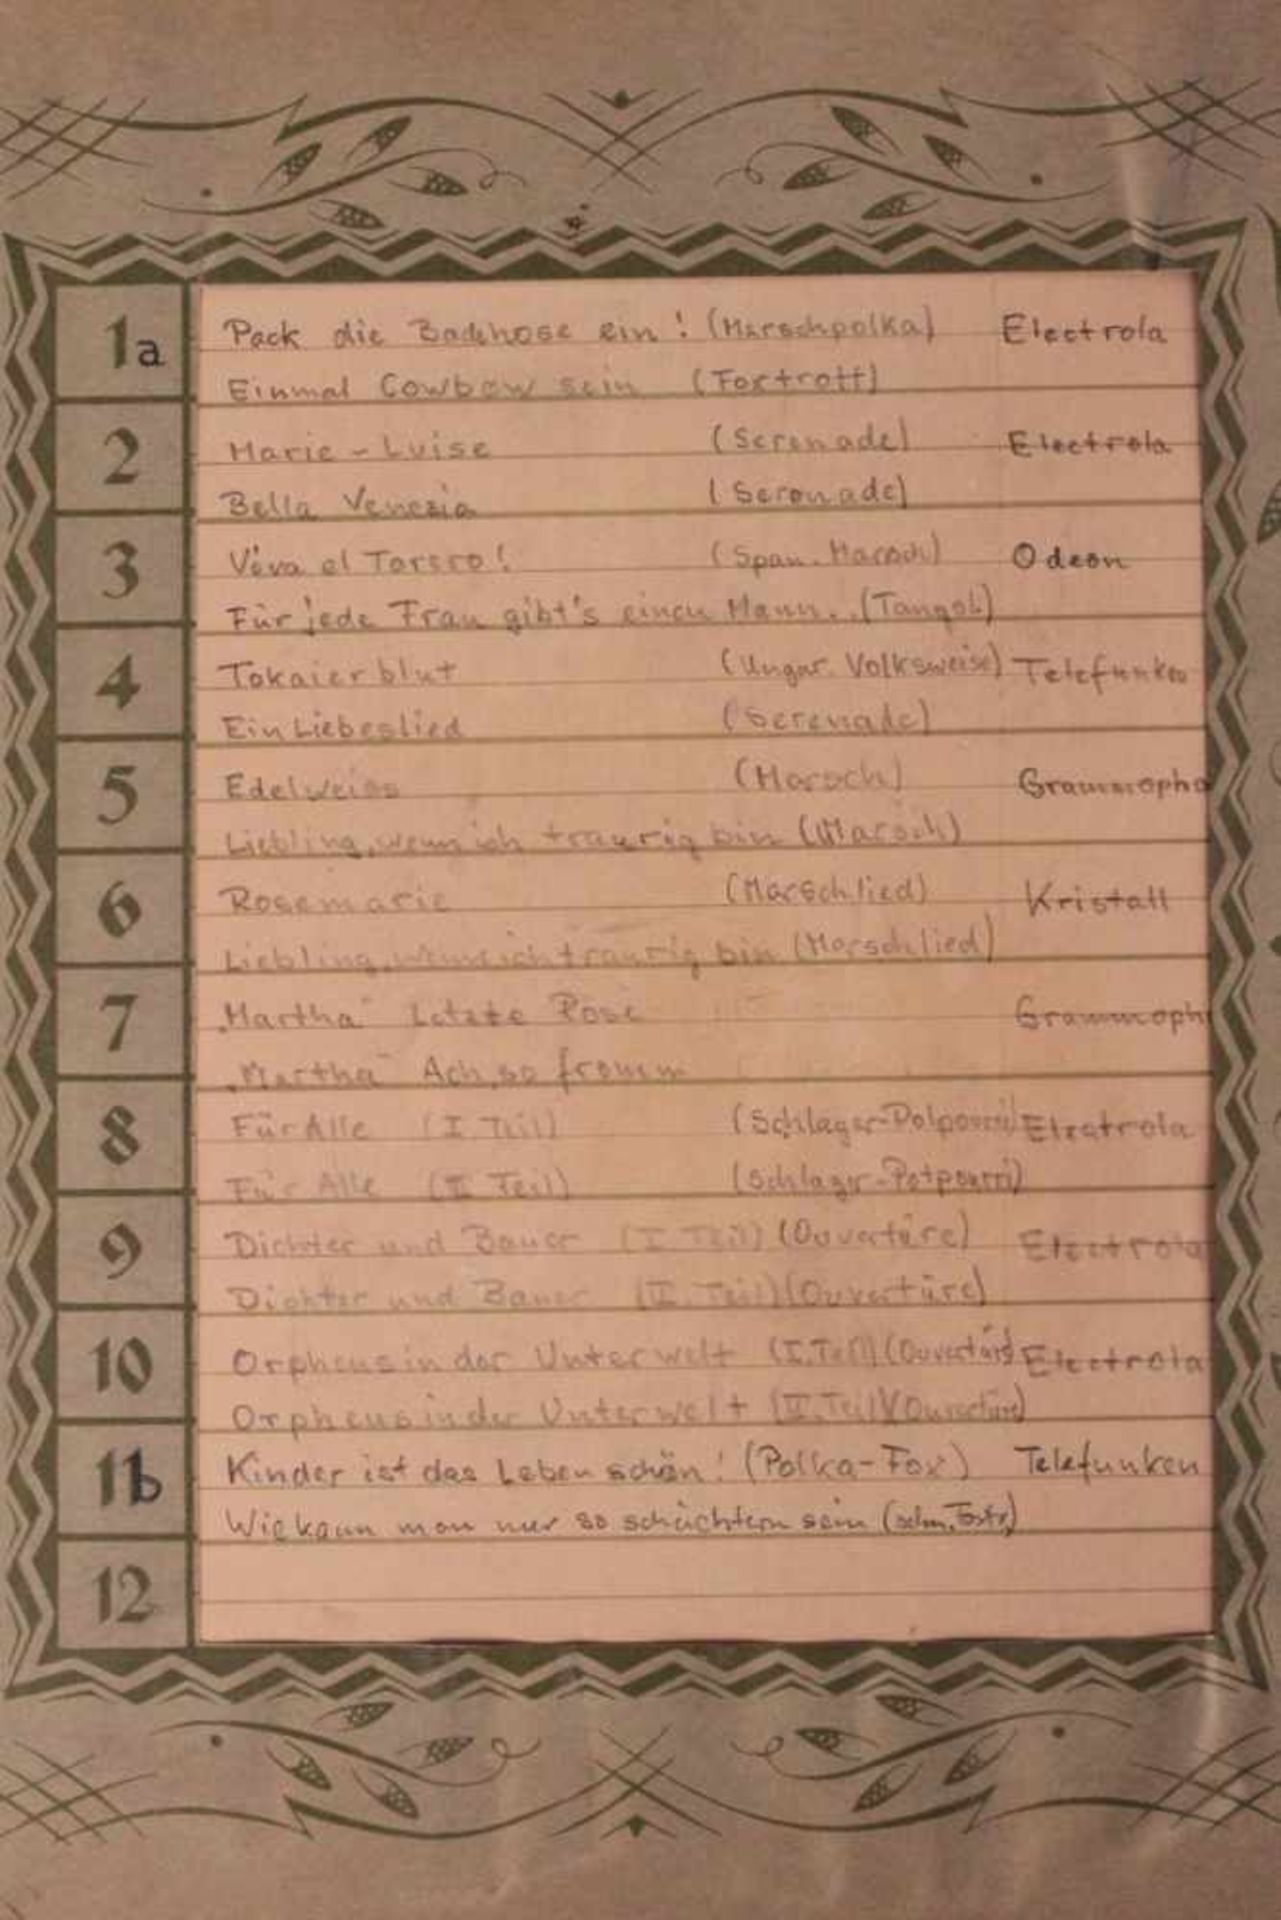 1a Pack die Badehose ein! (Marschpolka) Electrola
Einmal Cowbow sein (Foxtrott)
2 Marie-Luise (Serenade) Electrola
Bella Venezia (Serenade)
3 Viva el Torero! (Span. Marsch) Odeon
Für jede Frau gibt's einen Mann..(Tangol.)
4 Tokaierblut (Ungar. Volksweise) Telefunken
Ein Liebeslied (Serenade)
5 Edelweiss (Marsch) Grammopho
Liebling, wenn ich traurig bin (Marsch)
6 Rosemarie (Marschlied) Kristall
Liebling, wenn ich traurig bin (Marschlied)
7 „Martha" Letzte Rose Grammoph
„Martha" Ach, so fromm
8 Für Alle (I. Teil) (Schlager-Potpourri) Electrola
Für Alle (II. Teil) (Schlager-Potpourri)
9 Dichter und Bauer (I. Teil) (Ouvertüre) Electrola
Dichter und Bauer (II. Teil) (Ouvertüre)
10 Orpheus in der Unterwelt (I. Teil) (Ouvertüre) Electrola
Orpheus in der Unterwelt (II. Teil) (Ouvertüre)
11b Kinder ist das Leben schön! (Polka-Fox) Telefunken
Wie kann man nur so schüchtern sein
12